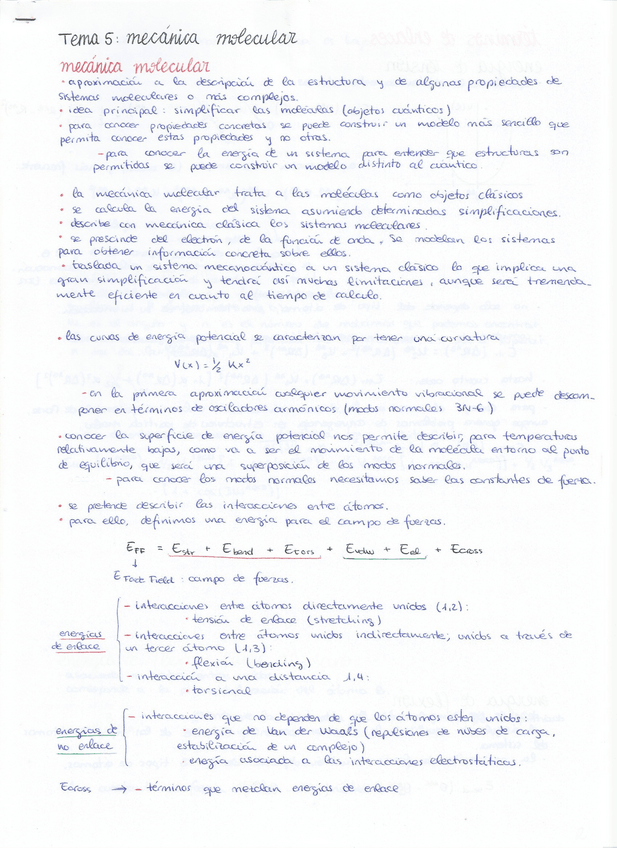 Tema 5: mecánica molecular
mecánica molecular
· aproximación a la descripción de la estructura y de algunas propiedades de
sistemas moleculares o más complejos.
· idea principal: simplificar las moléculas (objetos cuánticos)
· para conocer propiedades concretas se puede construir un modelo más sencillo que
permita conocer estas propiedades y no otras.
- para conocer la energía de un sistema para entender que estructuras son
permitidas se puede construir un modelo distinto al cuántico.
· la mecánica molecular trata a las moléculas como objetos clásicos
· se calcula la energía del sistema asumiendo determinadas simplificaciones.
· describe con mecánica clásica los sistemas moleculares.
· se prescinde del electrón, de la función de onda, se modelan los sistemas
para obtener información concreta sobre ellos.
· traslada un sistema mecanocuántico a un sistema clásico lo que implica una
gran simplificación y tendrá así muchas limitaciones, aunque será tremenda-
mente eficiente en cuanto al tiempo de cálculo.
· las curvas de energía potencial se caracterizan por tener una curvatura
V(x) = ½ Kx²
- en la primera aproximación cualquier movimiento vibracional se puede descom-
poner en términos de osciladores armónicos (modos normales 3N-6)
· conocer la superficie de energía potencial nos permite describir, para temperaturas
relativamente bajas, como va a ser el movimiento de la molécula entorno al punto
de equilibrio, que será una superposición de los modos normales.
- para conocer los modos normales necesitamos saber las constantes de fuerza.
· se pretende describir las interacciones entre átomos.
· para ello, definimos una energía para el campo de fuerzas.
E_FF = E_str + E_bend + E_tors + E_vdw + E_el + E_cross
↓
E Force Field: campo de fuerzas.
energías de enlace
- interacciones entre átomos directamente unidos (1,2):
· tensión de enlace (stretching)
- interacciones entre átomos unidos indirectamente, unidos a través de
un tercer átomo (1,3):
· flexión (bending)
- interacción a una distancia 1,4:
· torsional
energías de no enlace
- interacciones que no dependen de que los átomos estén unidos:
· energía de Van der Waals (repulsiones de nubes de carga,
estabilización de un complejo)
· energía asociada a las interacciones electrostáticas.
Ecross → - términos que mezclan energías de enlace